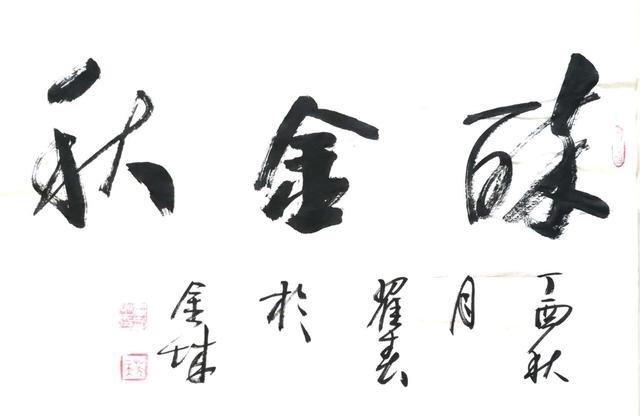 醉金秋
丁酉秋
月
翟春
於
金城